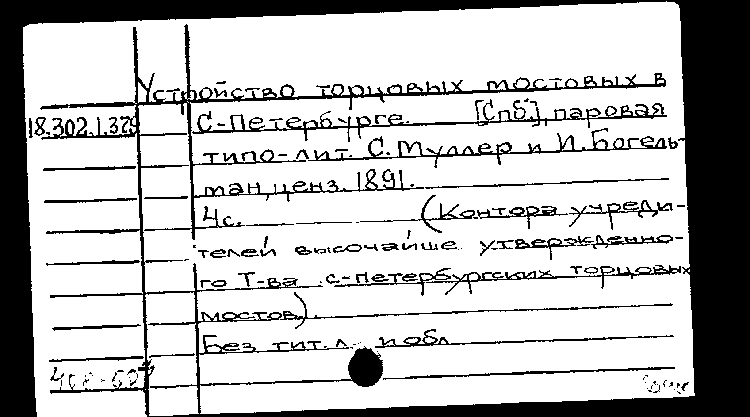 Устройство торцовых мостовых в
18.302.1.329 С-Петербурге. [Спб.], паровая
типо-лит. С. Муллер и И. Богель-
ман, ценз. 1891.
4с. (Контора учреди-
телей высочайше утвержденно-
го Т-ва с-петербургских торцовых
мостов).
Без тит. л. и обл.